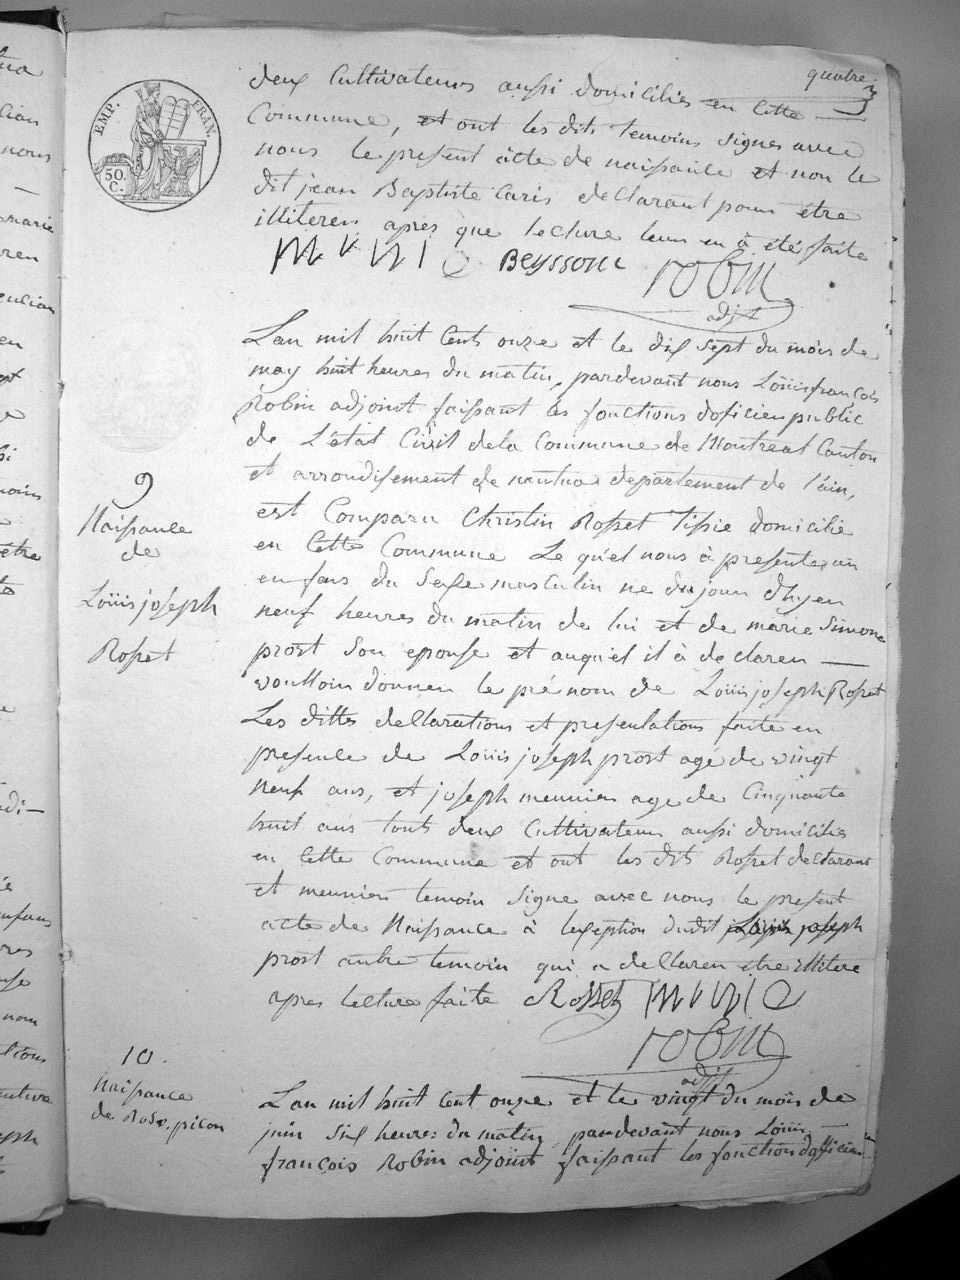 quatre
EMP. FRAN.
50. C.
deux Cultivateurs aussi domiciliés en cette
Commune, et ont les dits temoins signes avec
nous le present acte de naissance et non le
dit jean Baptiste Caris declarant pour étre
illiteren apres que lecture leur en à été faite
Beyssom robin
adjt
Lan mil huit Cents onze et le dix sept du mois de
may huit heures du matin, pardevant nous Loüis françois
Robin adjoint faissant les fonctions doficier public
de L'état Civil dela Commune de Montreal Canton
et arrondissement de nantua departement de l'ain,
est Comparu Christin Rosset tissie domicilie
en Cette Commune Le qu'el nous à presente un
enfans du Sexe masculin ne du jour d'hyer
neuf heures du matin de lui et de marie Simone
prost son epouse et auqu'el il à declaren
voulloir donner le prénom de Loüis joseph Rosset
Les dittes declarations et presentations faite en
presence de Loüis joseph prost agé de vingt
neuf ans, et joseph meunier age de Cinquante
huit ans touts deux Cultivateurs aussi domicilies
en Cette Commune et ont les dits Rosset declarant
et meunier temoin signe avec nous le present
acte de Naissance à lexception dudit Loüis joseph
prost autre temoin qui a declaren etre illitere
apres lecture faite Rosset
robin
adjt
9
Naissance
de
Loüis joseph
Rosset
10.
Naissance
de Rose, picon
Lan mil huit Cent onze et le vingt du mois de
juin six heures du matin pardevant nous Loüis
françois Robin adjoint faissant les fonction dofficier